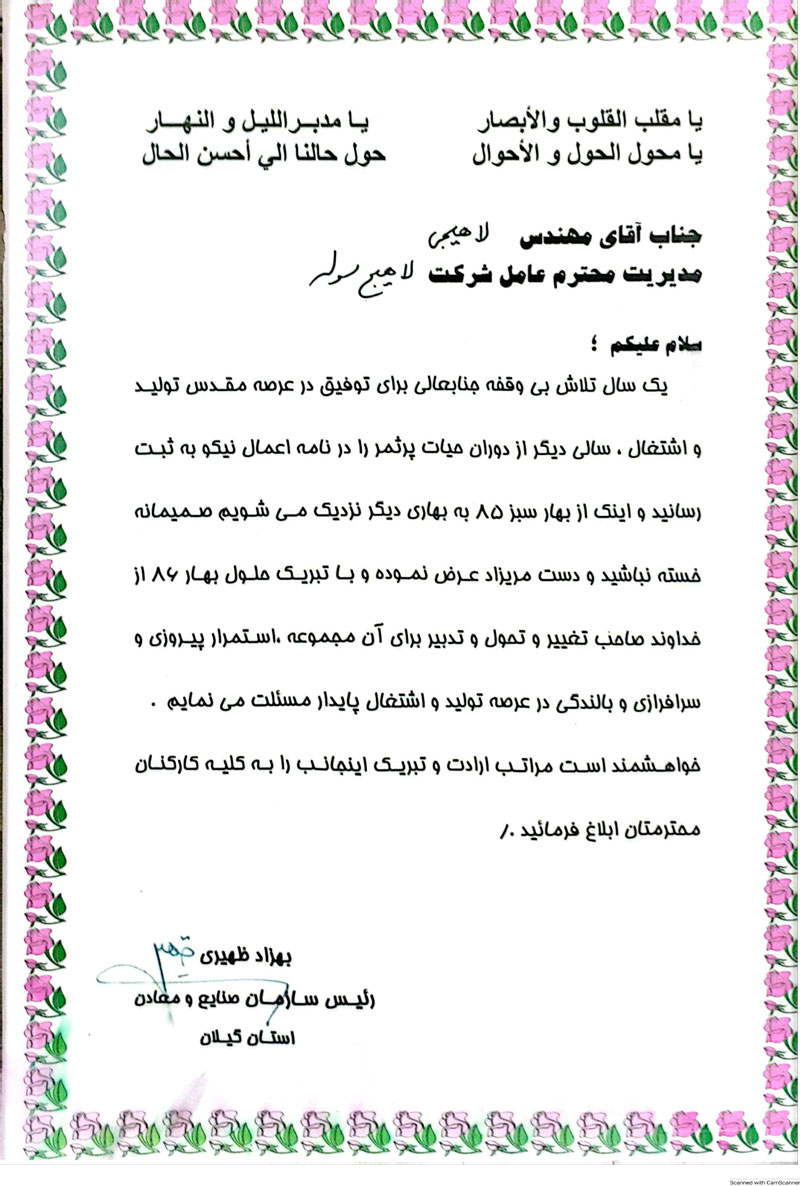 يا مقلب القلوب والأبصار يـا مدبـرالليل و النهـــار
يا محول الحول و الأحوال حول حالنا الي أحسن الحال
جناب آقای مهندس لاهیجی
مدیریت محترم عامل شرکت لاهیج سوله
سلام علیکم ؛
یک سال تلاش بی وقفه جنابعالی برای توفیق در عرصه مقدس تولید
و اشتغال ، سالی دیگر از دوران حیات پرثمر را در نامه اعمال نیکو به ثبت
رسانید و اینک از بهار سبز ۸۵ به بهاری دیگر نزدیک می شویم صمیمانه
خسته نباشید و دست مریزاد عرض نموده و با تبریک حلول بهار ۸۶ از
خداوند صاحب تغییر و تحول و تدبیر برای آن مجموعه ،استمرار پیروزی و
سرافرازی و بالندگی در عرصه تولید و اشتغال پایدار مسئلت می نمایم .
خواهشمند است مراتب ارادت و تبریک اینجانب را به کلیه کارکنان
محترمتان ابلاغ فرمائید ./
بهزاد ظهیری
رئیس سازمان صنایع و معادن
استان گیلان
Scanned with CamScanner